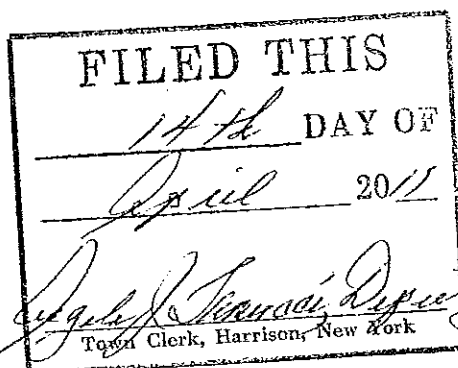 FILED THIS
14th DAY OF
April 2011
Town Clerk, Harrison, New York